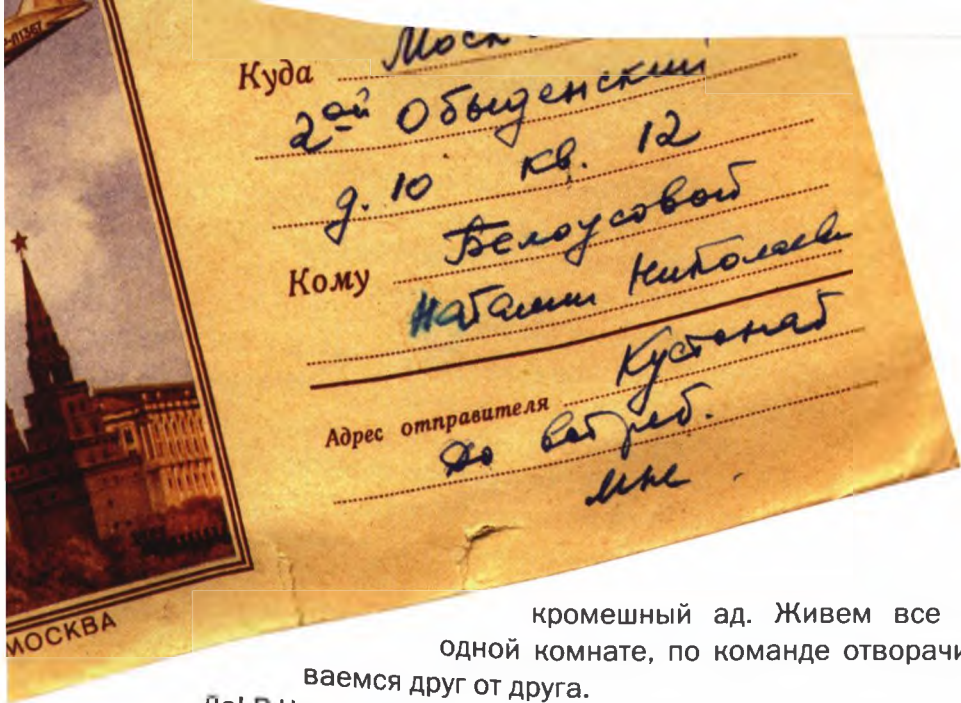 Л1367
Куда
2ой Обыденский
д. 10 кв. 12
Кому Белоусовой
Наталии Николаевн
Кустанай
Адрес отправителя
До востреб.
мне.
МОСКВА
кромешный ад. Живем все
одной комнате, по команде отворачи
ваемся друг от друга.